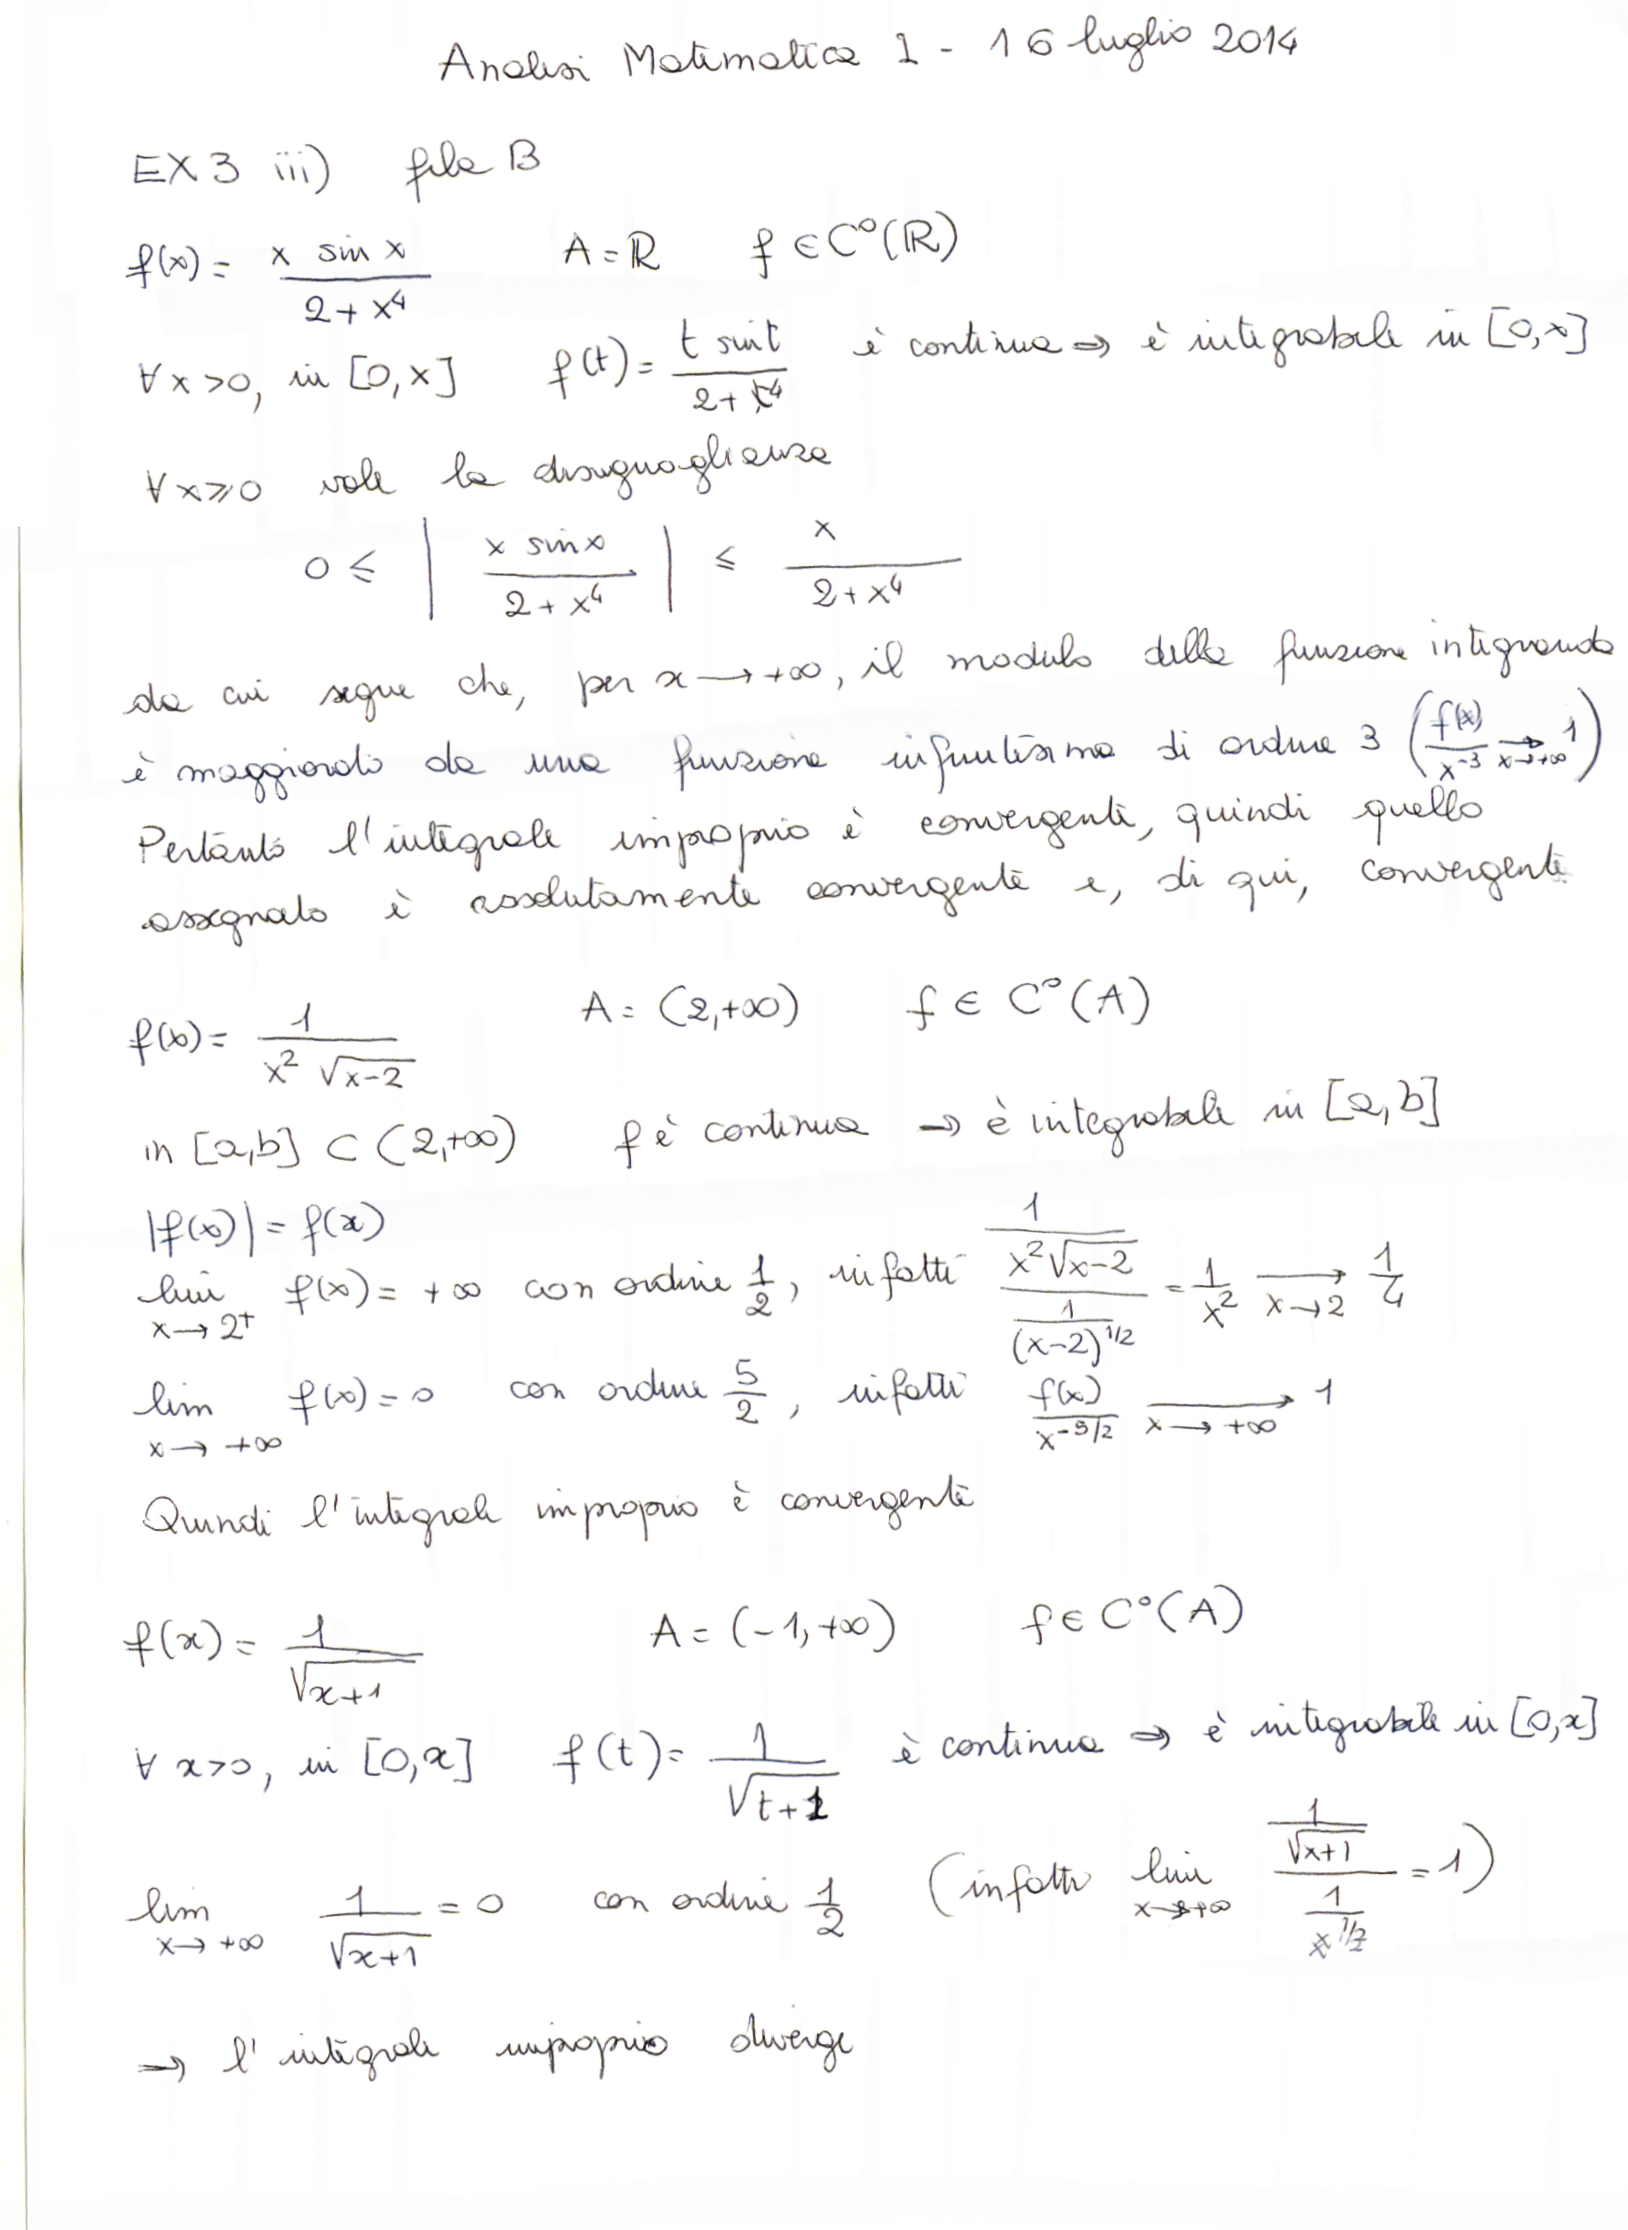 Analisi Matematica 1 - 16 luglio 2014
EX 3 iii) fila B
f(x) = x sin x / (2 + x⁴)    A = ℝ    f ∈ C⁰(ℝ)
∀ x > 0, in [0, x]    f(t) = t sin t / (2 + t⁴)    è continua ⇒ è integrabile in [0, x]
∀ x ⩾ 0 vale la disuguaglianza
0 ⩽ | x sin x / (2 + x⁴) | ⩽ x / (2 + x⁴)
da cui segue che, per x → +∞, il modulo della funzione integranda
è maggiorato da una funzione infinitesima di ordine 3 ( f(x) / x⁻³ → 1 x → +∞ )
Pertanto l'integrale improprio è convergente, quindi quello
assegnato è assolutamente convergente e, di qui, convergente
f(x) = 1 / (x² √(x-2))    A = (2, +∞)    f ∈ C⁰(A)
in [a, b] ⊂ (2, +∞)    f è continua → è integrabile in [a, b]
|f(x)| = f(x)
lim x → 2⁺ f(x) = +∞ con ordine 1/2, infatti (1 / (x² √(x-2))) / (1 / (x-2)^(1/2)) = 1/x² → x → 2 1/4
lim x → +∞ f(x) = 0 con ordine 5/2, infatti f(x) / x^(-5/2) → x → +∞ 1
Quindi l'integrale improprio è convergente
f(x) = 1 / √(x+1)    A = (-1, +∞)    f ∈ C⁰(A)
∀ x > 0, in [0, x]    f(t) = 1 / √(t+1)    è continua ⇒ è integrabile in [0, x]
lim x → +∞ 1 / √(x+1) = 0 con ordine 1/2 (infatti lim x → +∞ (1 / √(x+1)) / (1 / x^(1/2)) = 1)
⇒ l'integrale improprio diverge